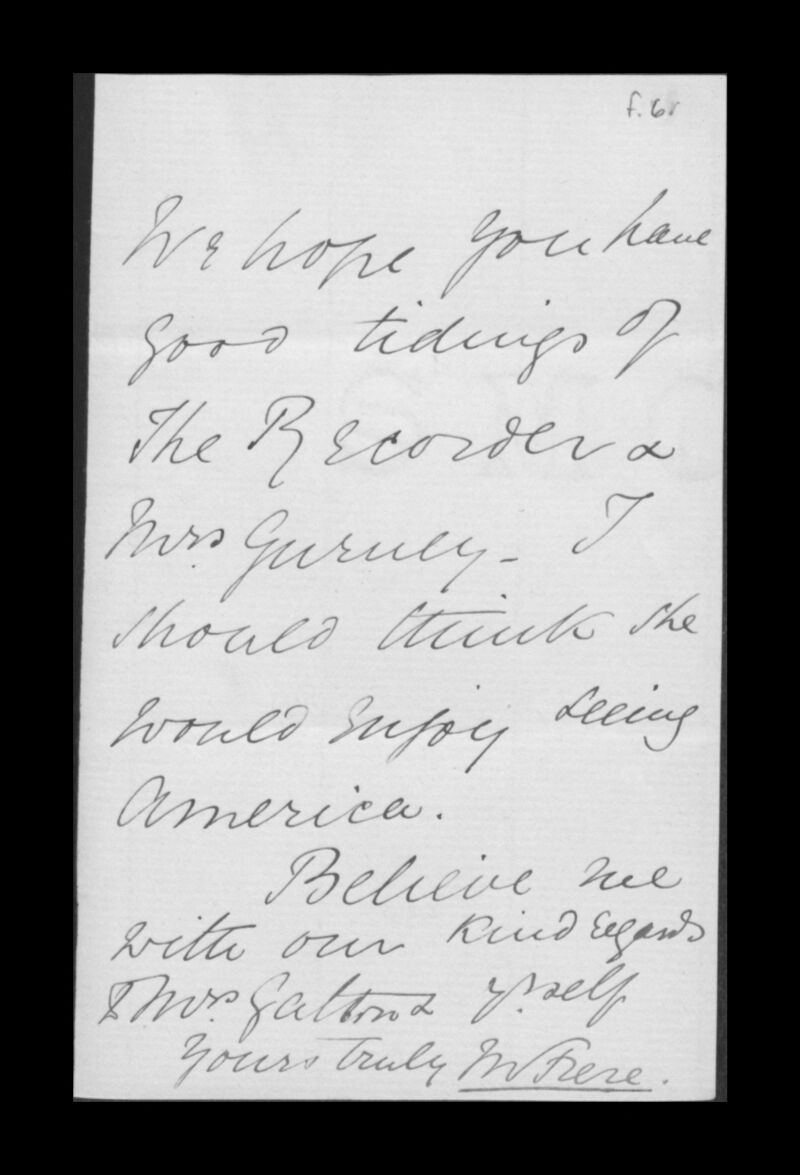 f.6r
We hope you have
good tidings of
the Recorder &
Mrs Gurney - I
should think she
would enjoy seeing
America.
Believe me
with our kind regards
to Mrs Galton & yrself
Yours truly W Frere.